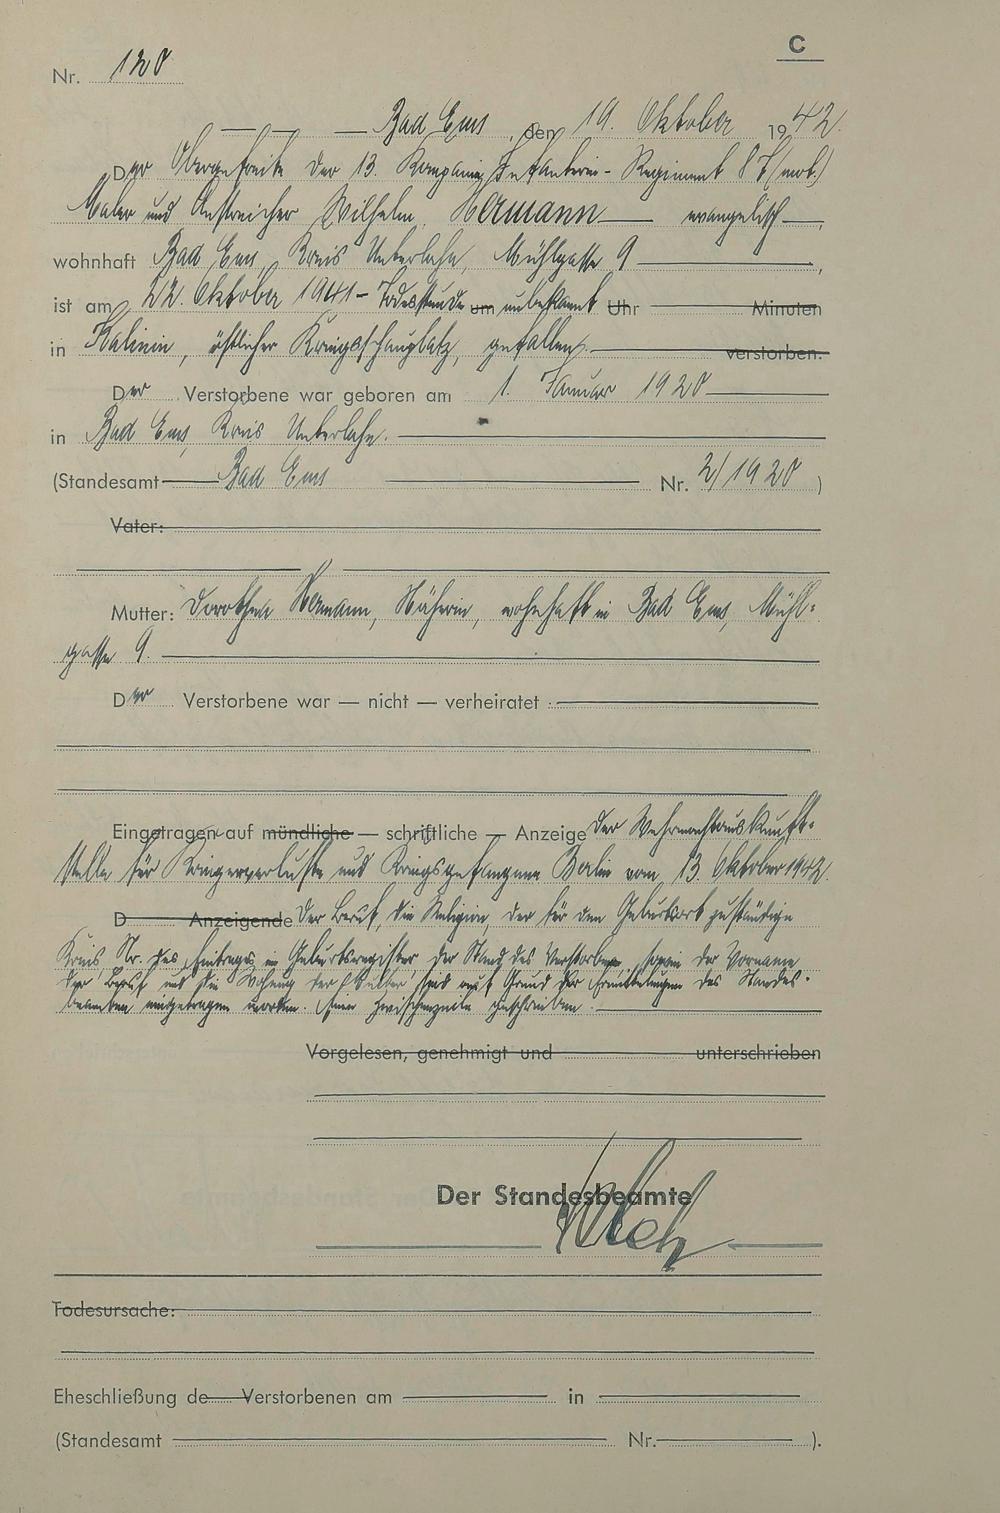 C
Nr. 120
Bad Ems, den 19. Oktober 1942.
Der Obergefreite der 13. Kompanie Infanterie-Regiment 87 (mot.)
Maler und Anstreicher Wilhelm Hermann — evangelisch —,
wohnhaft Bad Ems, Kreis Unterlahn, Mühlgasse 9 —,
ist am 22. Oktober 1941 - Todesstunde um unbekannt Uhr — Minuten
in Kalinin, östlicher Kriegsschauplatz, gefallen. — verstorben.
Der Verstorbene war geboren am 1. Januar 1920 —
in Bad Ems, Kreis Unterlahn. —
(Standesamt — Bad Ems — Nr. 2/1920)
Vater: —
Mutter: Dorothea Hermann, Näherin, wohnhaft in Bad Ems, Mühl-
gasse 9. —
Der Verstorbene war — nicht — verheiratet. —
Eingetragen auf mündliche — schriftliche — Anzeige der Wehrmachtauskunft-
stelle für Kriegerverluste und Kriegsgefangene Berlin vom 13. Oktober 1942.
D— Anzeigende Der Beruf, die Religion, der für den Geburtsort zuständige
Kreis, Nr. des Eintrages im Geburtsregister, der Stand des Verstorbenen, sowie der Vorname,
der Beruf und die Wohnung der Mutter sind auf Grund der Ermittelungen des Standes-
beamten eingetragen worden. Zwischenzeile geschrieben. —
Vorgelesen, genehmigt und — unterschrieben
Der Standesbeamte
Todesursache: —
Eheschließung de— Verstorbenen am — in —
(Standesamt — Nr. — ).